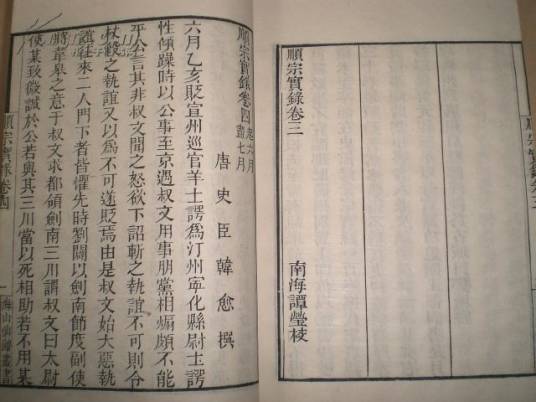 順宗實錄卷三
南海譚瑩校
順宗實錄卷三
順宗實錄卷四
起六月
盡七月
唐史臣韓愈撰
六月乙亥貶宣州巡官羊士諤爲汀州寧化縣尉士諤
性傾躁時以公事至京遇叔文用事朋黨相煽頗不能
平公言其非叔文聞之怒欲下詔斬之執誼不可則令
杖殺之執誼又以爲不可遂貶焉由是叔文始大惡執
誼往來二人門下者皆懼先時劉闢以劍南節度副使
將韋皋之意于叔文求都領劍南三川謂叔文曰太尉
使某致微誠於公若與其三川當以死相助若不用某
順宗實錄卷四
海山仙館叢書